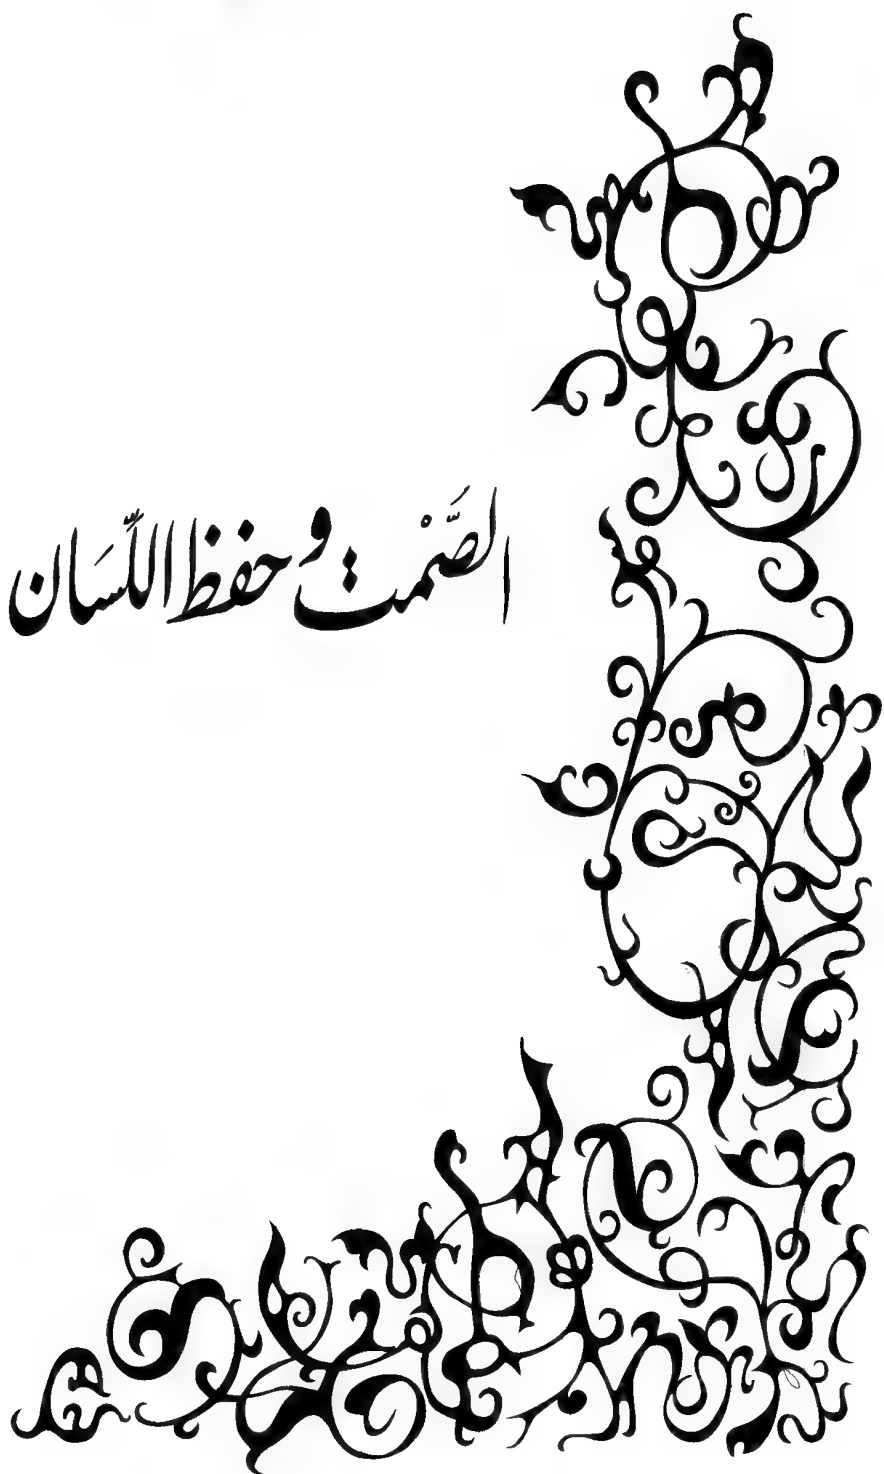 الصَّمْت وحفظ اللِّسَان